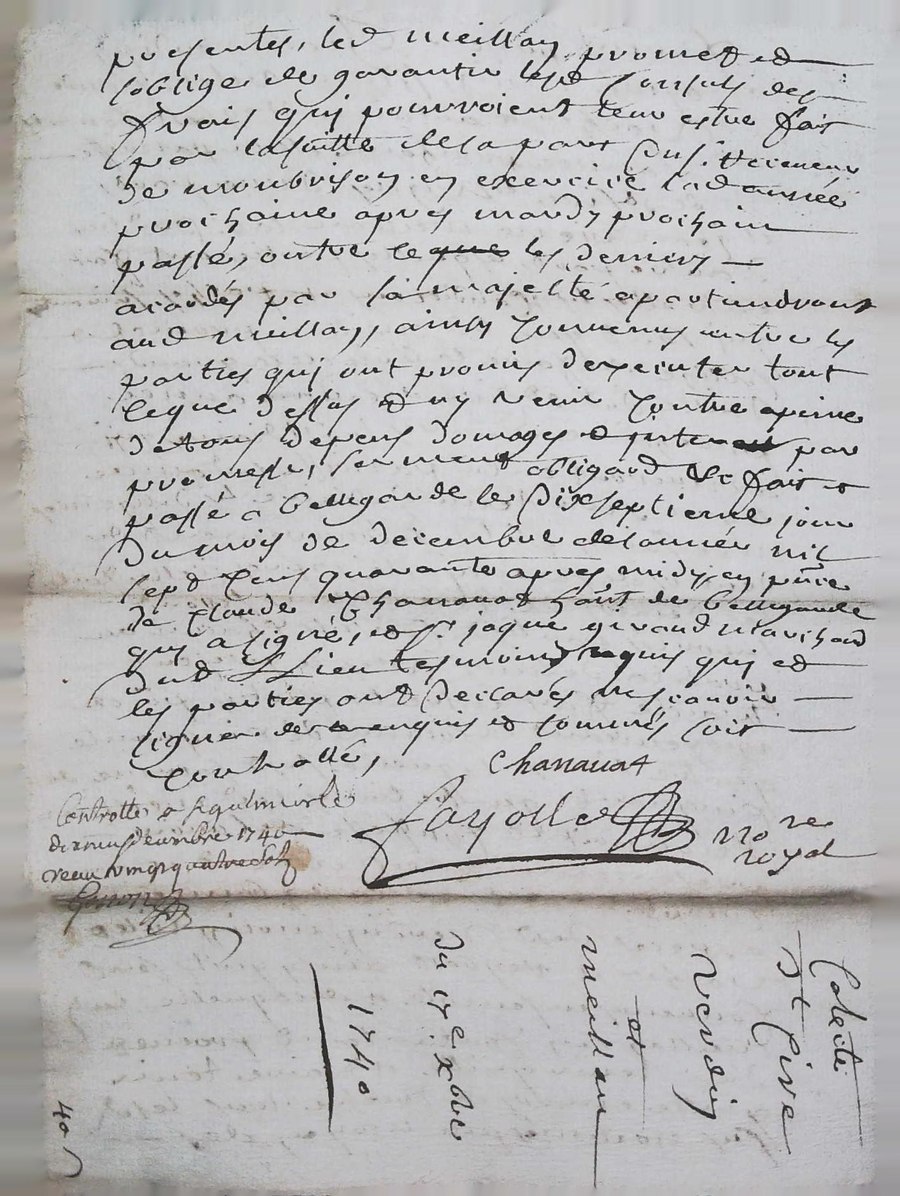 presentes, led meillan promet et
soblige de garantir lesd Consuls des
frais quj pourroient leur estre fait
par la suitte de sa part
de monbrison en exercice lad année
prochaine apres mardy prochain
passé, outre ce que les deniers
acordés par sa majesté apartiendront
aud meillan, ainsy convenus entre les
parties quj ont promis dexecuter tout
ceque dessus et ny venir contre apeine
de tous depens domages et interest par
promesse, serment obligaon &c fait et
passé a bellegarde le dixseptieme jour
du mois de decembre de lannée mil
sept cens quarante apres midy, en pnce
de Claude Chanauat hant de bellegarde
quj a signé, et sr jaque giraud marchand
dud Lieu tesmoins requis quj et
les parties ont declarés ne scavoir
signer de ce enquis et sommés soit
controllé,
Chanauat
fayolle nore
royal
Controllé a
dixneuf decembre 1740
receu vingt quatre sols
Colecte
St Cire
Verdij
et
meillan
du 17e xbre
1740
40